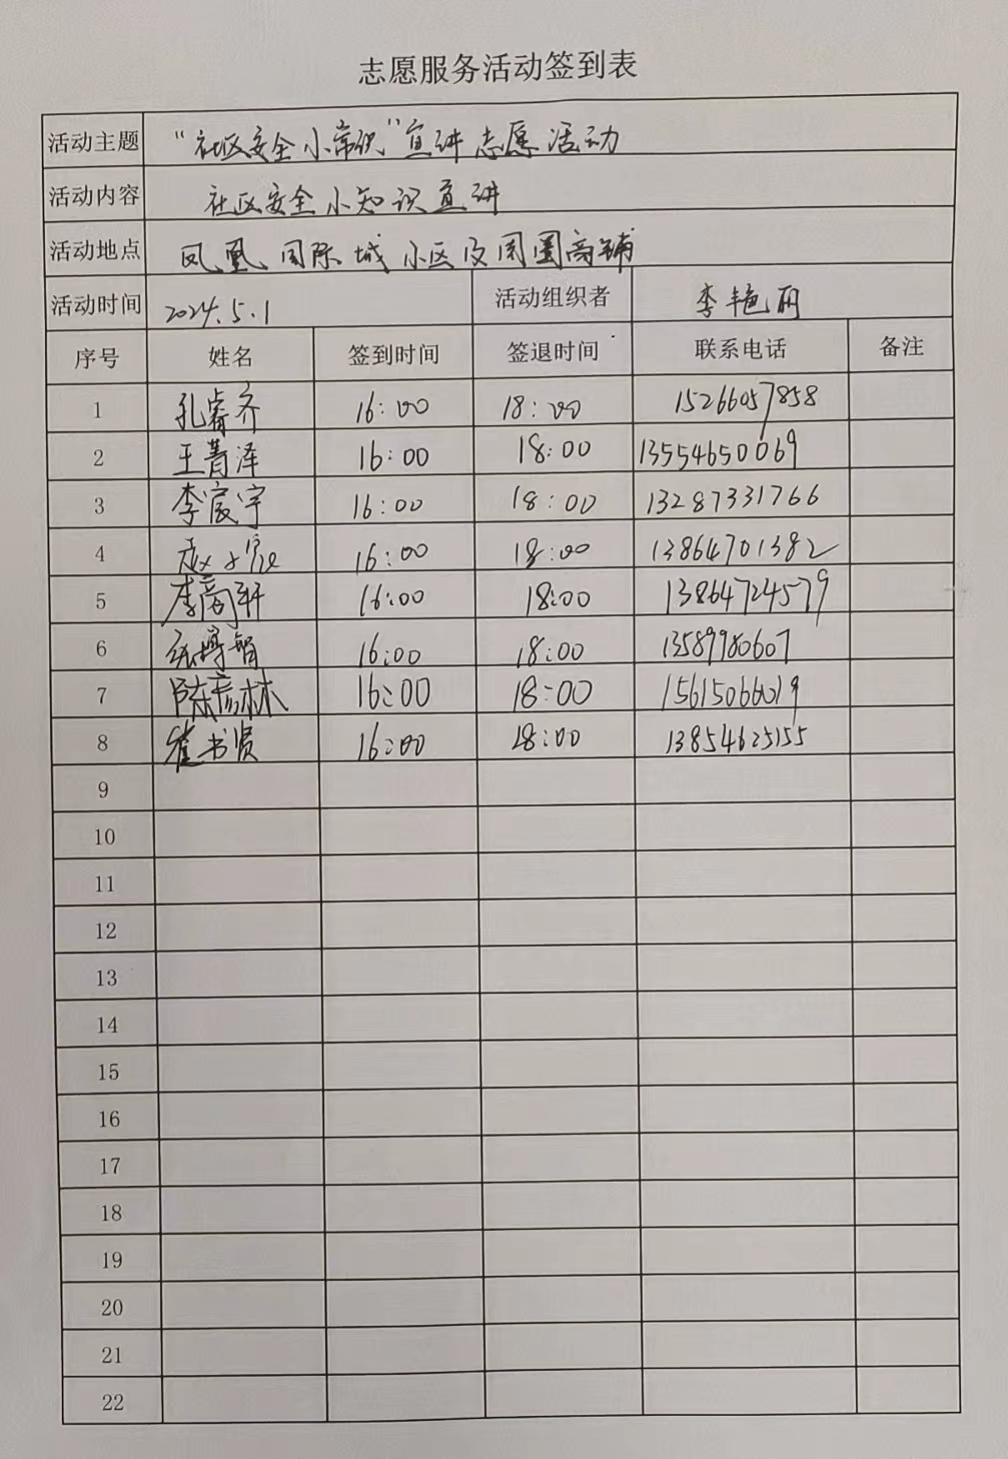 志愿服务活动签到表
活动主题 “社区安全小常识”宣讲志愿活动
活动内容 社区安全小知识宣讲
活动地点 凤凰国际城小区及周围商铺
活动时间 2024.5.1 活动组织者 李艳丽
序号 姓名 签到时间 签退时间 联系电话 备注
1 孔睿齐 16:00 18:00 15266057858
2 王菁泽 16:00 18:00 13554650069
3 李宸宇 16:00 18:00 13287331766
4 赵 16:00 18:00 13864701382
5 李商轩 16:00 18:00 13864724579
6 张博智 16:00 18:00 13589980607
7 陈彦林 16:00 18:00 15615066019
8 崔书贤 16:00 18:00 13854625155
9
10
11
12
13
14
15
16
17
18
19
20
21
22